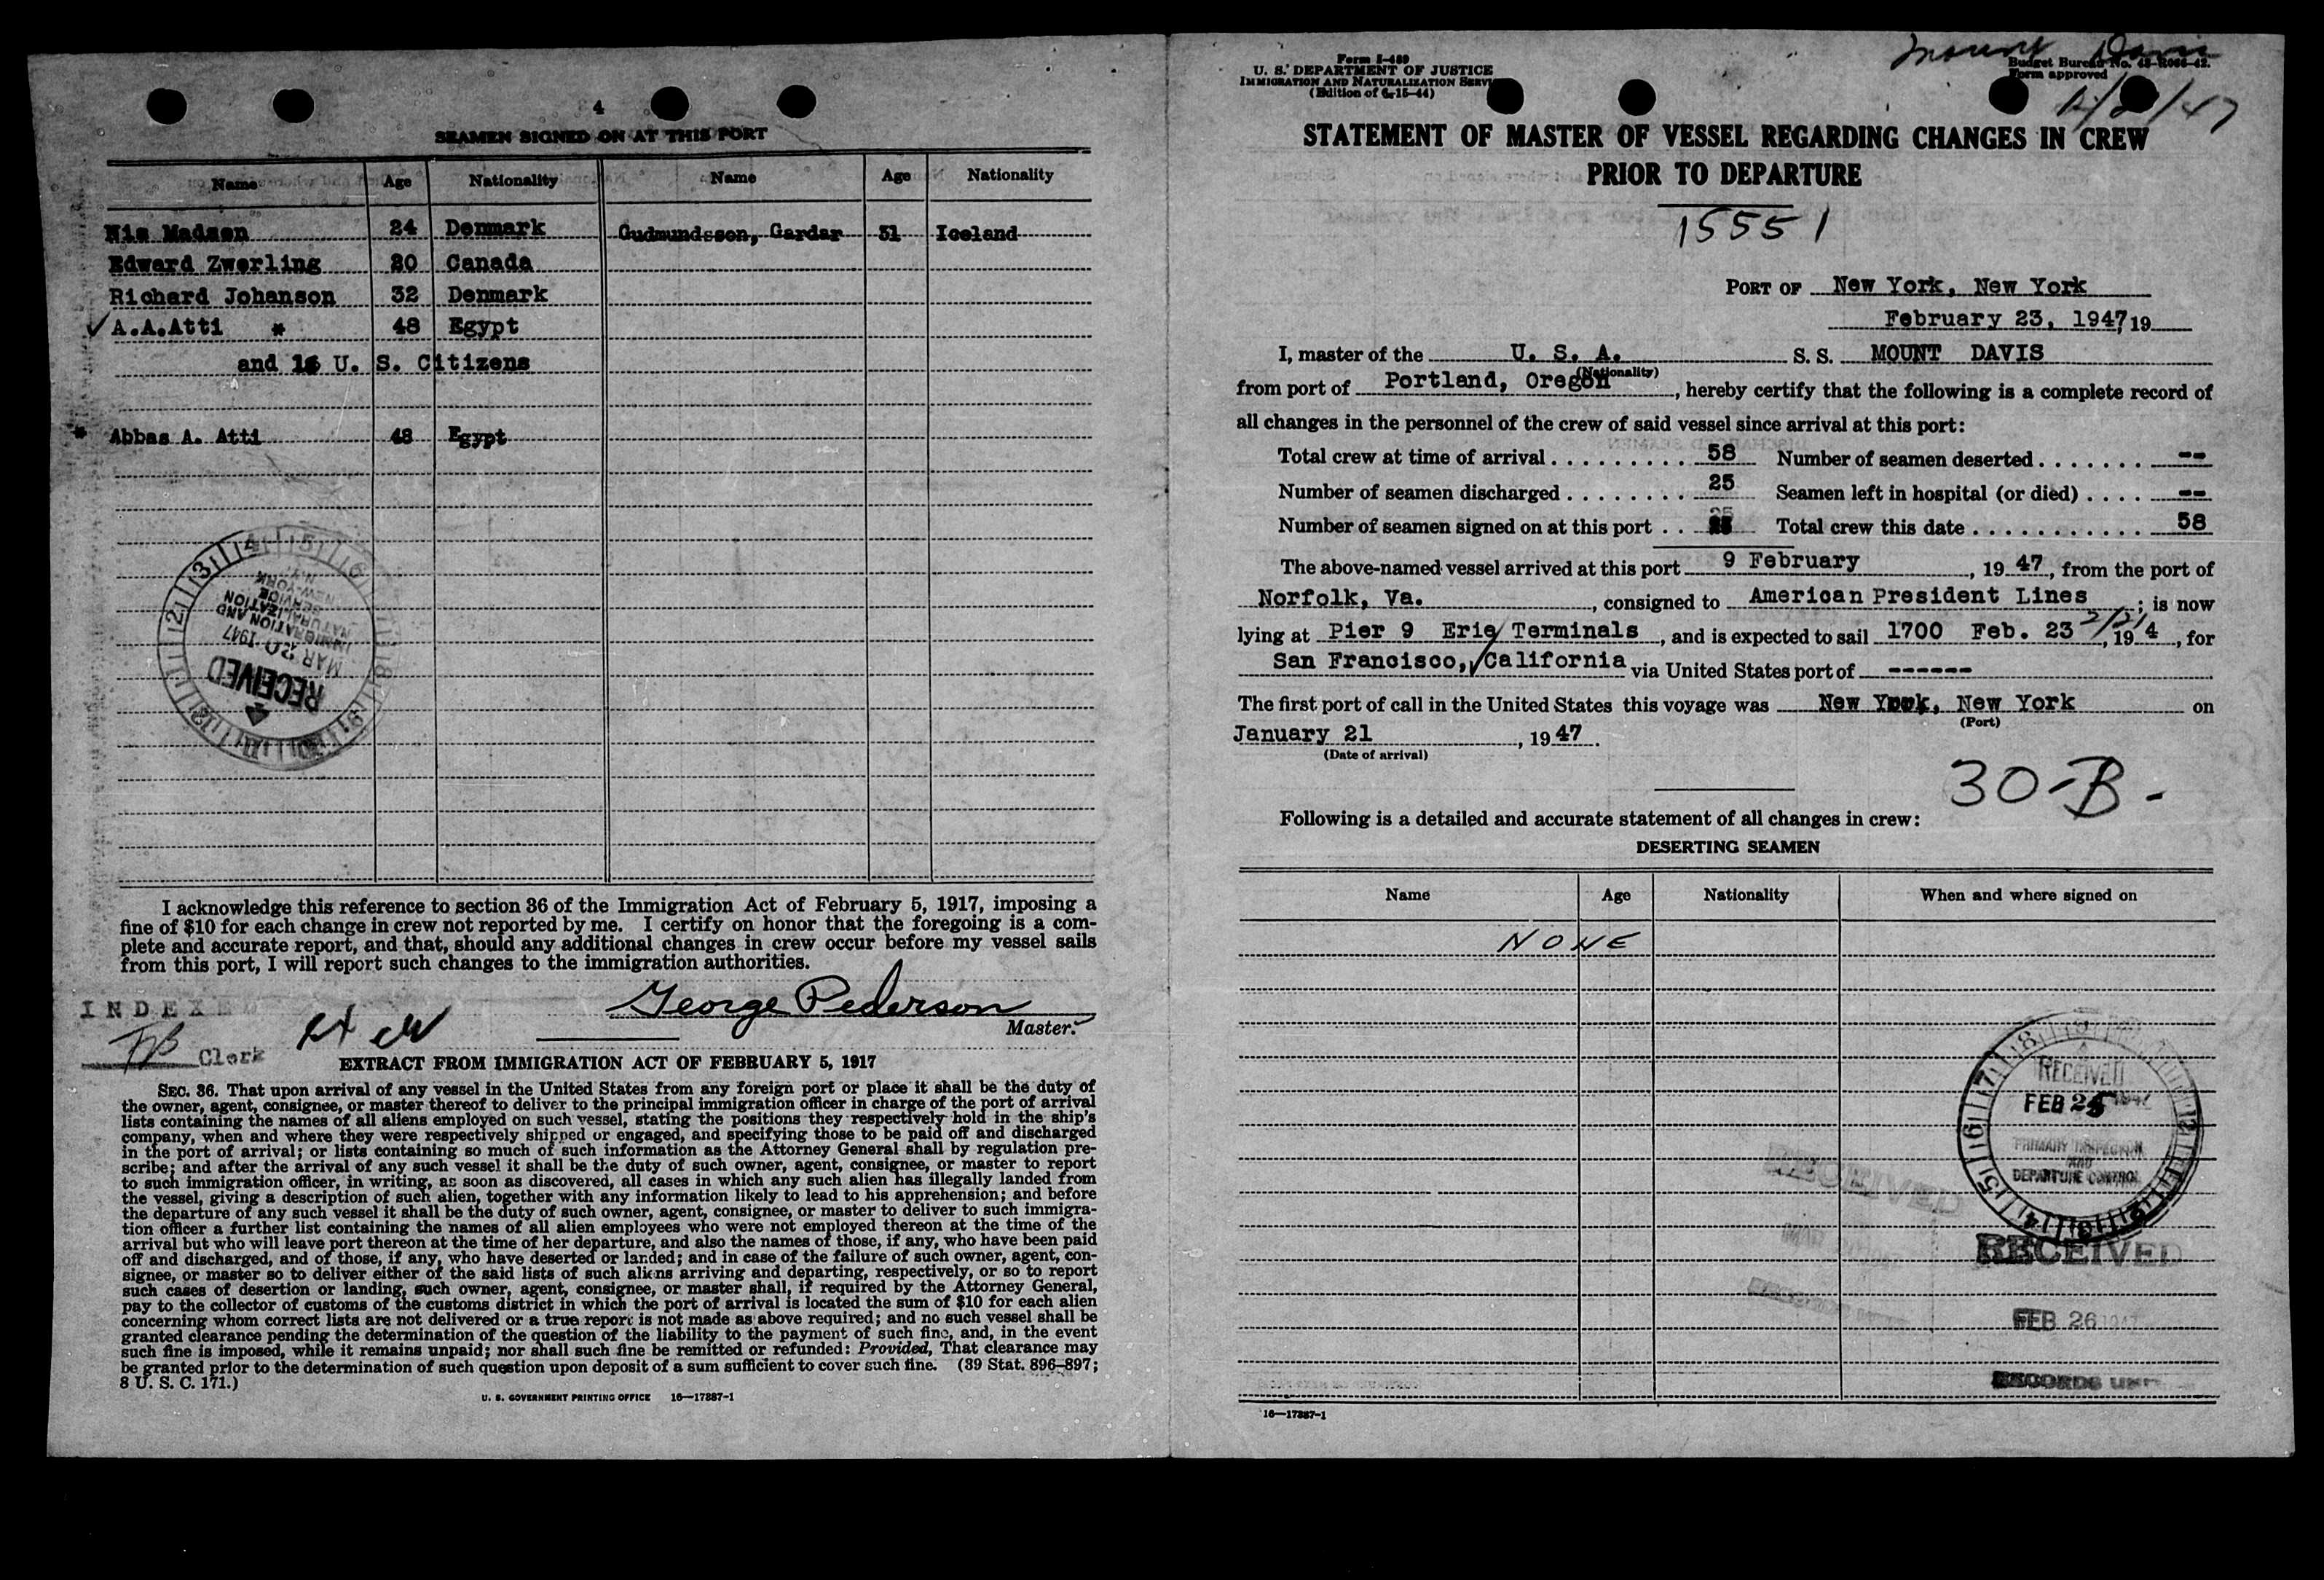 4
SEAMEN SIGNED ON AT THIS PORT
Name Age Nationality Name Age Nationality
Nis Madsen 24 Denmark Gudmundsson, Gardar 31 Iceland
Edward Zwerling 20 Canada
Richard Johanson 32 Denmark
✓ A.A.Atti * 48 Egypt
and U. S. Citizens
* Abbas A. Atti 48 Egypt
RECEIVED
MAR 20 1947
IMMIGRATION AND
NATURALIZATION
SERVICE
NEW YORK
N.Y.
I acknowledge this reference to section 36 of the Immigration Act of February 5, 1917, imposing a
fine of $10 for each change in crew not reported by me. I certify on honor that the foregoing is a com-
plete and accurate report, and that, should any additional changes in crew occur before my vessel sails
from this port, I will report such changes to the immigration authorities.
George Pederson
Master.
INDEXED
Clerk
EXTRACT FROM IMMIGRATION ACT OF FEBRUARY 5, 1917
SEC. 36. That upon arrival of any vessel in the United States from any foreign port or place it shall be the duty of
the owner, agent, consignee, or master thereof to deliver to the principal immigration officer in charge of the port of arrival
lists containing the names of all aliens employed on such vessel, stating the positions they respectively hold in the ship's
company, when and where they were respectively shipped or engaged, and specifying those to be paid off and discharged
in the port of arrival; or lists containing so much of such information as the Attorney General shall by regulation pre-
scribe; and after the arrival of any such vessel it shall be the duty of such owner, agent, consignee, or master to report
to such immigration officer, in writing, as soon as discovered, all cases in which any such alien has illegally landed from
the vessel, giving a description of such alien, together with any information likely to lead to his apprehension; and before
the departure of any such vessel it shall be the duty of such owner, agent, consignee, or master to deliver to such immigra-
tion officer a further list containing the names of all alien employees who were not employed thereon at the time of the
arrival but who will leave port thereon at the time of her departure, and also the names of those, if any, who have been paid
off and discharged, and of those, if any, who have deserted or landed; and in case of the failure of such owner, agent, con-
signee, or master so to deliver either of the said lists of such aliens arriving and departing, respectively, or so to report
such cases of desertion or landing, such owner, agent, consignee, or master shall, if required by the Attorney General,
pay to the collector of customs of the customs district in which the port of arrival is located the sum of $10 for each alien
concerning whom correct lists are not delivered or a true report is not made as above required; and no such vessel shall be
granted clearance pending the determination of the question of the liability to the payment of such fine, and, in the event
such fine is imposed, while it remains unpaid; nor shall such fine be remitted or refunded: Provided, That clearance may
be granted prior to the determination of such question upon deposit of a sum sufficient to cover such fine. (39 Stat. 896-897;
8 U. S. C. 171.)
U. S. GOVERNMENT PRINTING OFFICE 16—17387-1
Form I-489
U. S. DEPARTMENT OF JUSTICE
IMMIGRATION AND NATURALIZATION SERVICE
(Edition of 6-15-44)
Mount Davis
Budget Bureau No. 43-R066-42.
Form approved
STATEMENT OF MASTER OF VESSEL REGARDING CHANGES IN CREW
PRIOR TO DEPARTURE
15551
PORT OF New York, New York
February 23, 1947, 19
I, master of the U. S. A. S. S. MOUNT DAVIS
(Nationality)
from port of Portland, Oregon, hereby certify that the following is a complete record of
all changes in the personnel of the crew of said vessel since arrival at this port:
Total crew at time of arrival 58 Number of seamen deserted --
Number of seamen discharged 25 Seamen left in hospital (or died) --
Number of seamen signed on at this port 25 Total crew this date 58
The above-named vessel arrived at this port 9 February, 19 47, from the port of
Norfolk, Va., consigned to American President Lines; is now
lying at Pier 9 Erie Terminals, and is expected to sail 1700 Feb. 23, 19 4, for
San Francisco, California via United States port of ------
The first port of call in the United States this voyage was New York, New York on
(Port)
January 21, 19 47.
(Date of arrival)
30-B-
Following is a detailed and accurate statement of all changes in crew:
DESERTING SEAMEN
Name Age Nationality When and where signed on
NONE
RECEIVED
FEB 25 1947
PRIMARY INSPECTION
AND
DEPARTURE CONTROL
RECEIVED
RECEIVED
FEB 26 1947
RECORDS UNIT
16—17387-1